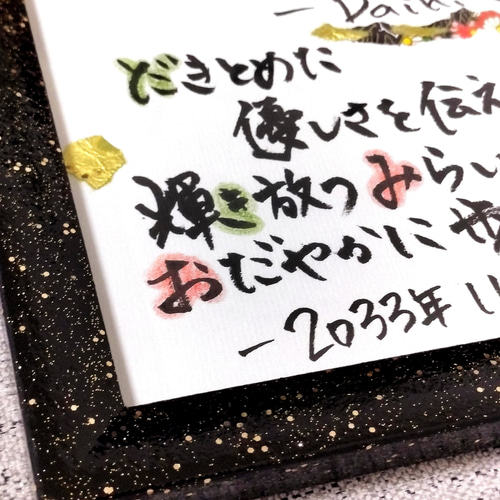 だきとめた
優しさを伝え
輝き放つみらい
おだやかに
－2033年11